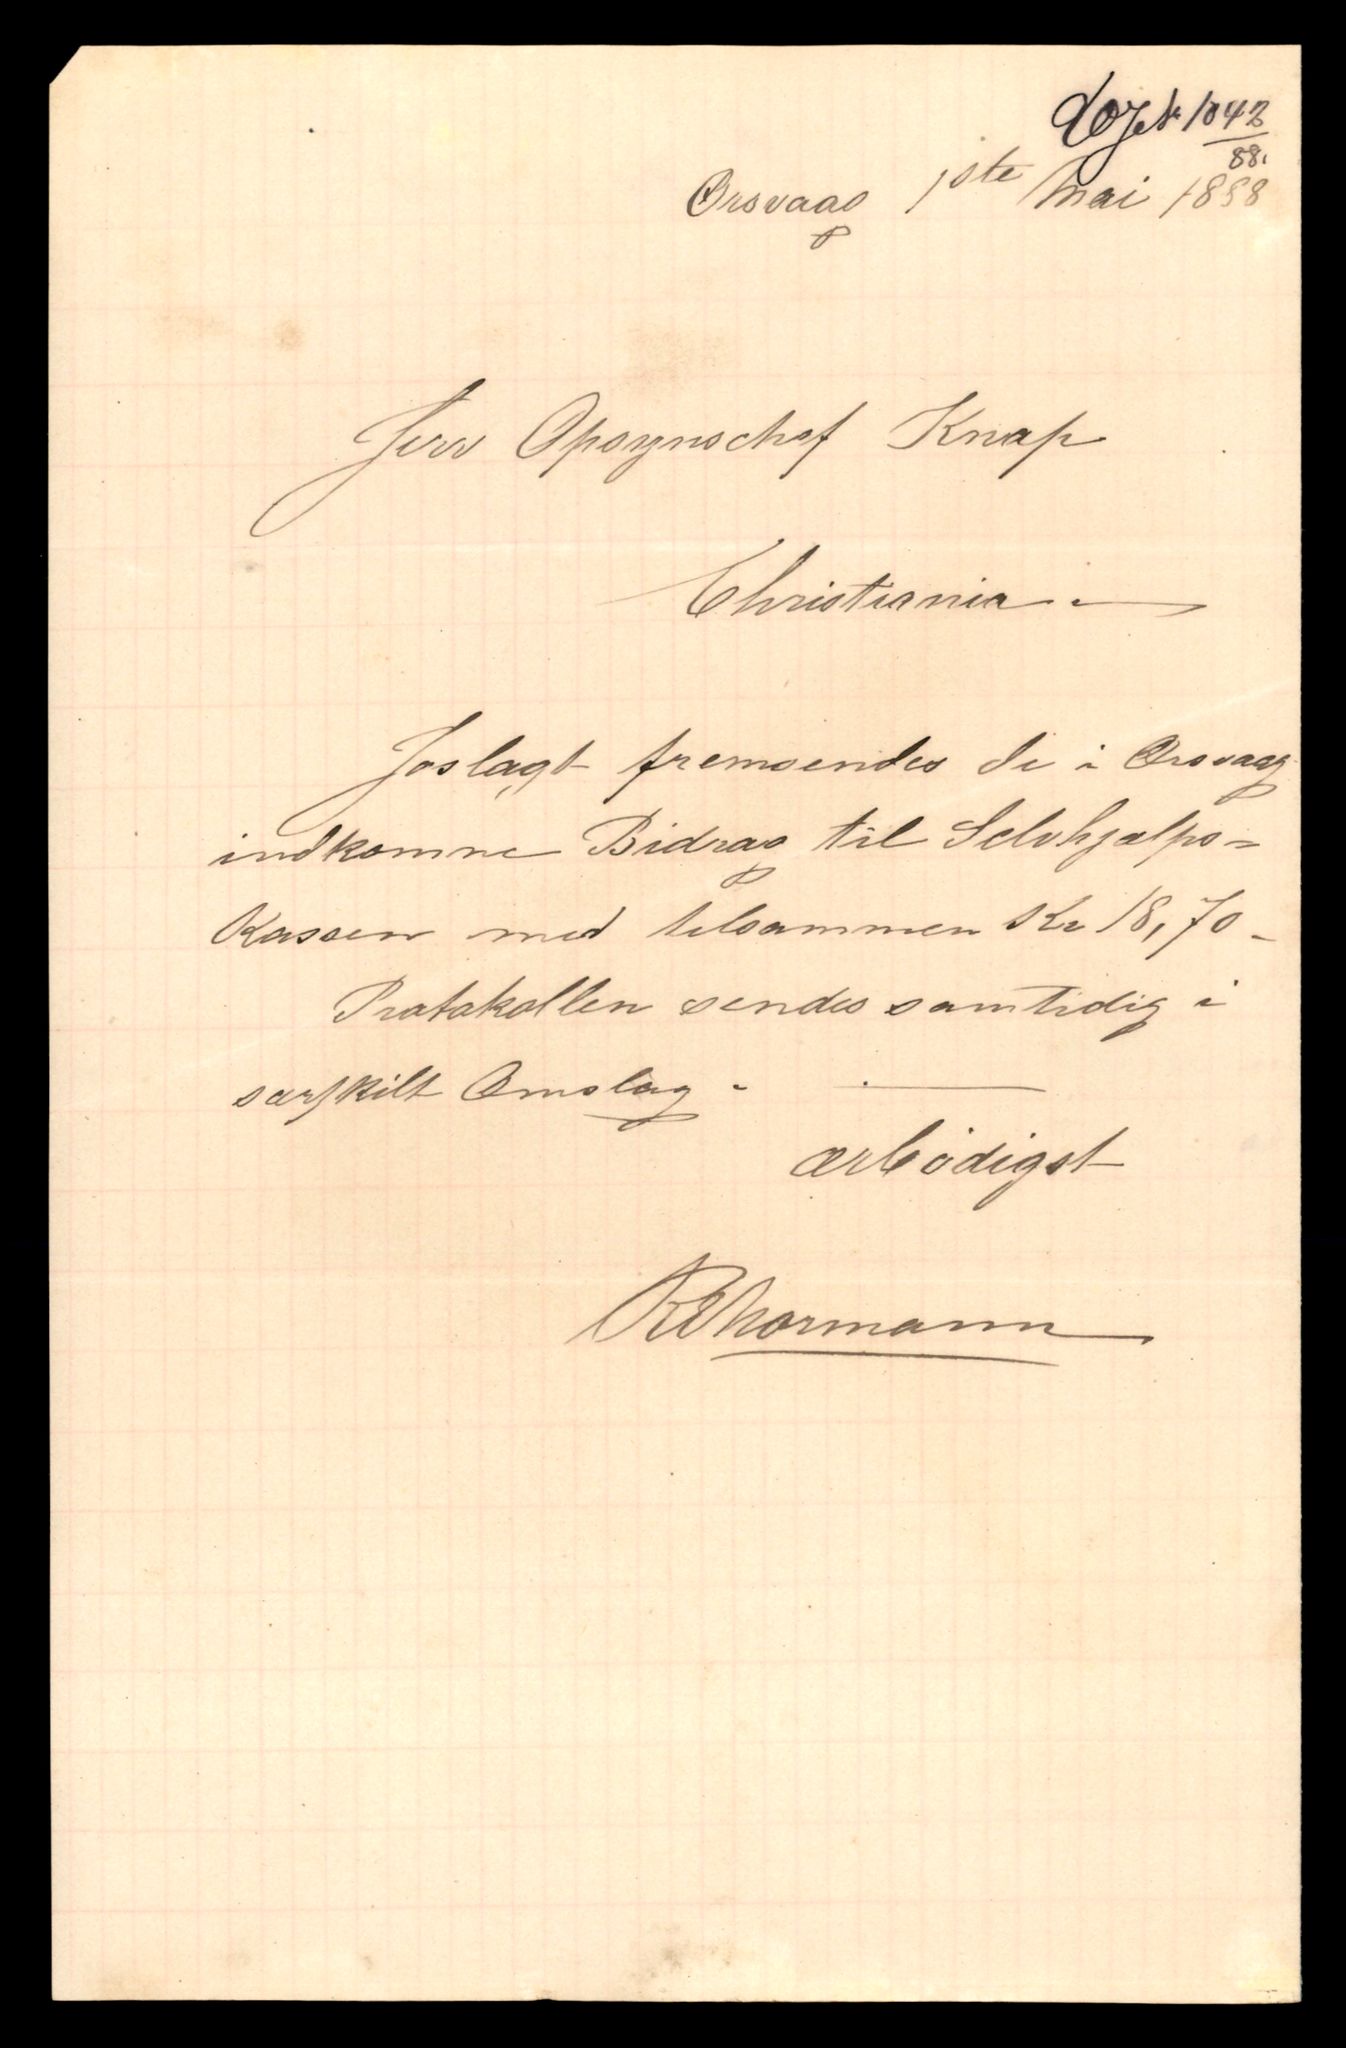 1042
88.
Orsvaag 1ste Mai 1888
Herr Opsynschef Knap
Christiania. -
Hoslagt fremsendes de i Orsvaag
indkomne Bidrag til Selvhjælps-
Kassen med tilsammen Kr 18,70 -
Protokollen sendes samtidig i
særskilt Omslag -
ærbødigst